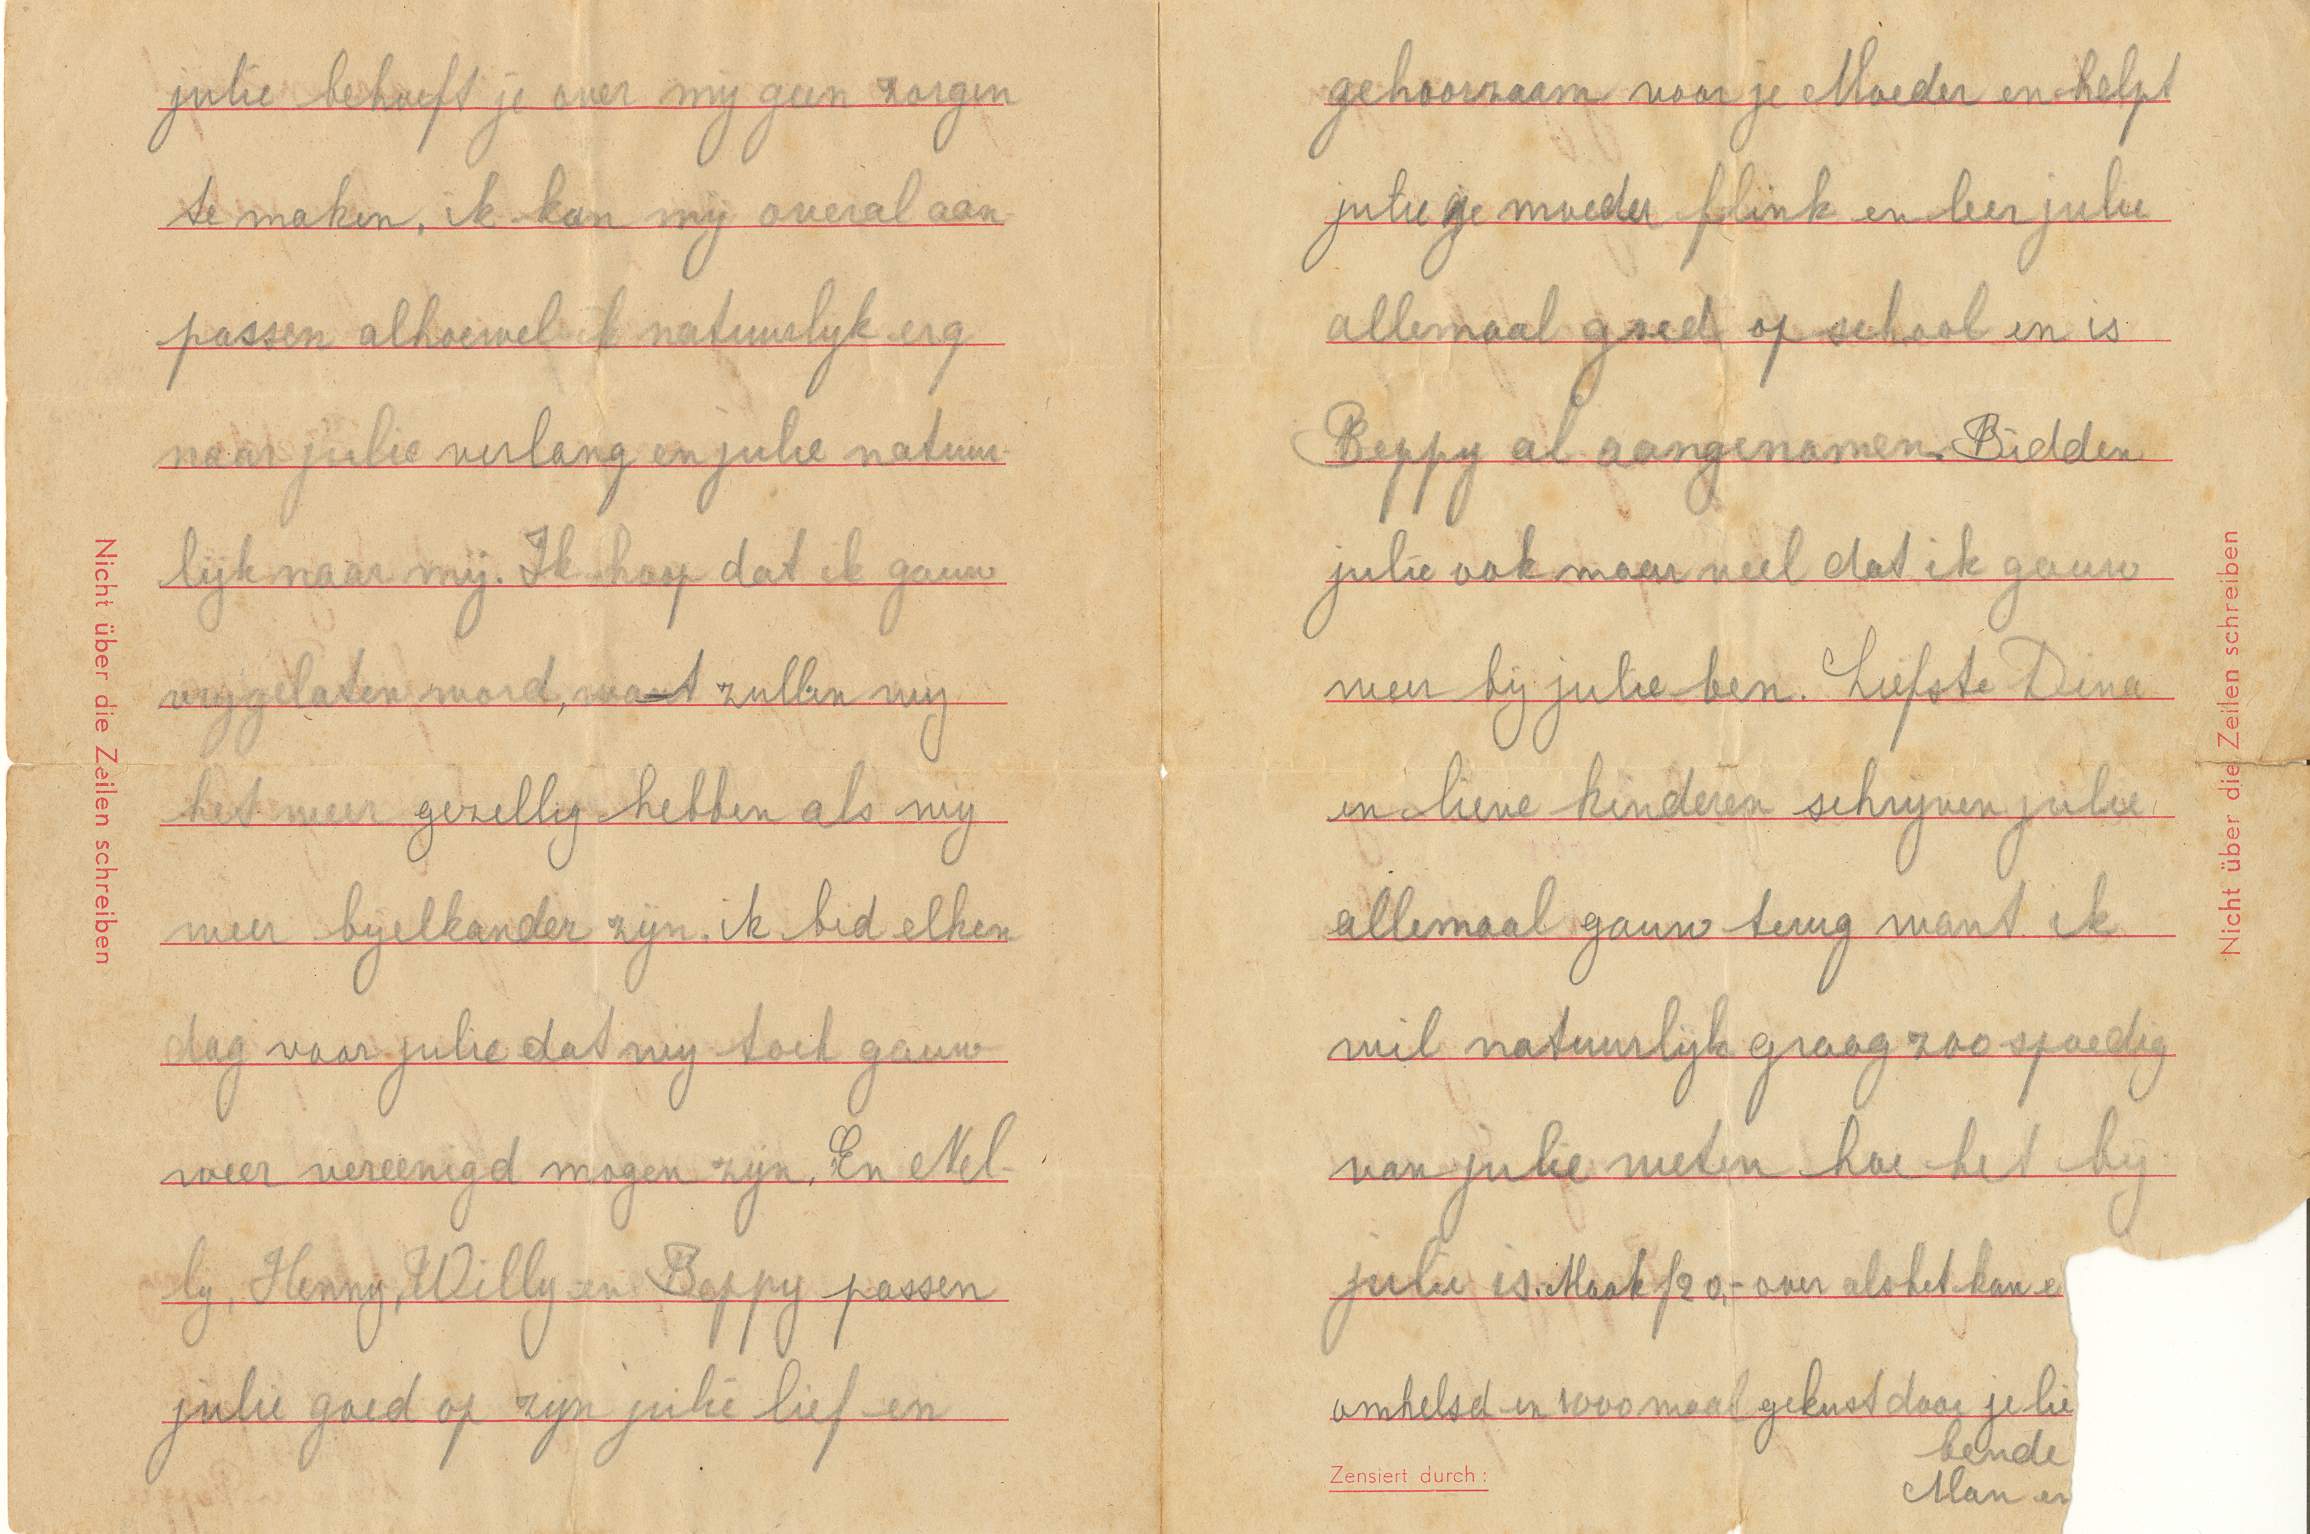 julie behoeft je over mij geen zorgen
te maken, ik kan mij overal aan
passen alhoewel ik natuurlijk erg
naar julie verlang en julie natuur-
lijk naar mij. Ik hoop dat ik gauw
vrijgelaten word, want zullen wij
het weer gezellig hebben als wij
weer bijelkander zijn. ik bid elken
dag voor julie dat wij toch gauw
weer vereenigd mogen zijn. En Nel-
ly, Henny, Willy en Beppy passen
julie goed op zijn julie lief en
Nicht über die Zeilen schreiben
gehoorzaam voor je Moeder en helpt
julie je moeder flink en leer julie
allemaal goed op school en is
Beppy al aangenomen. Bidden
julie ook maar veel dat ik gauw
weer bij julie ben. Liefste Dina
en lieve kinderen schrijven julie
allemaal gauw terug want ik
wil natuurlijk graag zoo spoedig
van julie weten hoe het bij
julie is. Maak f20,- over als het kan e
omhelsd en 1000 maal gekust door je lie
bende
Man en
Zensiert durch:
Nicht über die Zeilen schreiben